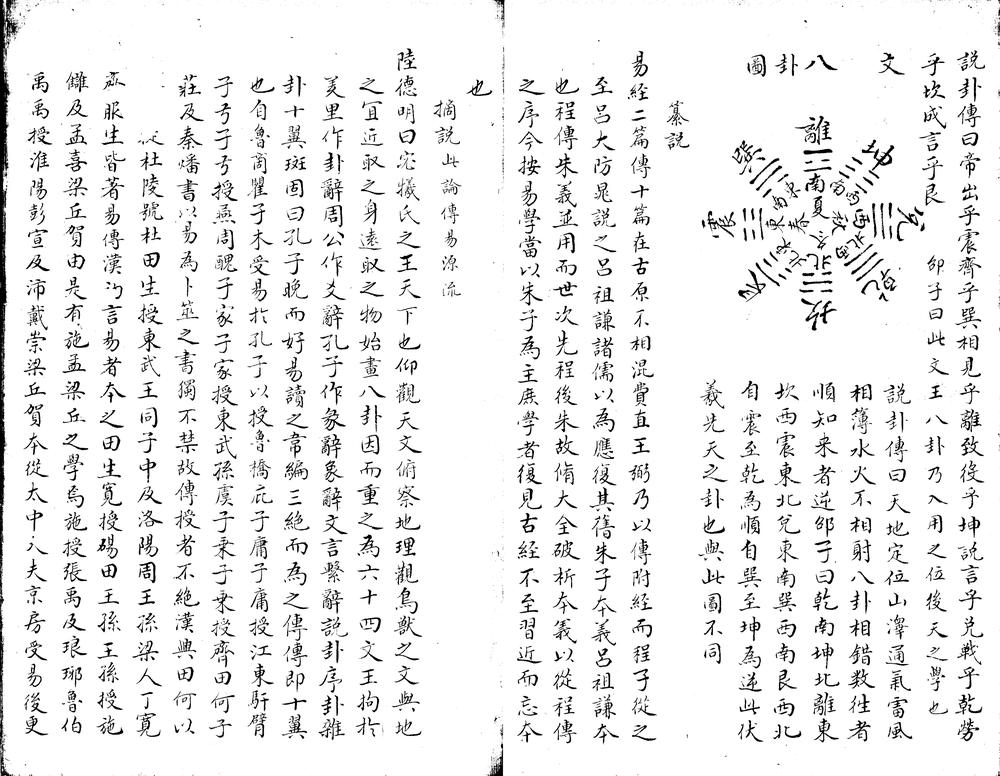 說卦傳曰帝出乎震齊乎巽相見乎離致役乎坤說言乎兌戰乎乾勞
乎坎成言乎艮　邵子曰此文王八卦乃入用之位後天之學也
文
八
卦
圖
離
坤
兌
乾
坎
艮
震
巽
南
夏
西
秋
北
冬
東
春
說卦傳曰天地定位山澤通氣雷風
相薄水火不相射八卦相錯数徃者
順知来者逆邵子曰乾南坤北離東
坎西震東北兌東南巽西南艮西北
自震至乾為順自巽至坤為逆此伏
羲先天之卦也與此圖不同
纂說
易經二篇傳十篇在古原不相混費直王弼乃以傳附經而程子從之
至呂大防晁說之呂祖謙諸儒以為應復其舊朱子本義呂祖謙本
也程傳朱義並用而世次先程後朱故脩大全破析本義以從程傳
之序今按易學當以朱子為主庶學者復見古経不至習近而忘本
也
摘說此論傳易源流
陸德明曰宓犧氏之王天下也仰觀天文俯察地理觀鳥獸之文與地
之宜近取之身遠取之物始畫八卦因而重之為六十四文王拘於
羑里作卦辭周公作爻辭孔子作彖辭象辭文言繫辭說卦序卦雜
卦十翼班固曰孔子晚而好易讀之常編三絕而為之傳傳即十翼
也自魯商瞿子木受易於孔子以授魯橋庇子庸子庸授江東馯臂
子弓子弓授燕周醜子家子家授東武孫虞子乗子乗授齊田何子
莊及秦燔書以易為卜筮之書獨不禁故傳授者不絕漢興田何以
杜陵號杜田生授東武王同子中及洛陽周王孫梁人丁寛
服生皆著易傳漢初言易者本之田生寛授碭田王孫王孫授施
讎及孟喜梁丘賀由是有施孟梁丘之學焉施授張禹及琅瑯魯伯
禹禹授淮陽彭宣及沛戴崇梁丘賀本從太中大夫京房受易後更